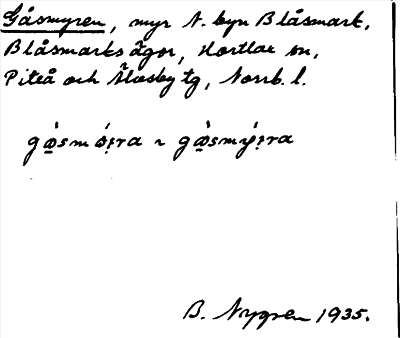 Gåsmyren, myr N. byn Blåsmark,
Blåsmarks ägor, Hortlax sn,
Piteå och Älvsby tg, Norrb. l.
B. Nygren 1935.